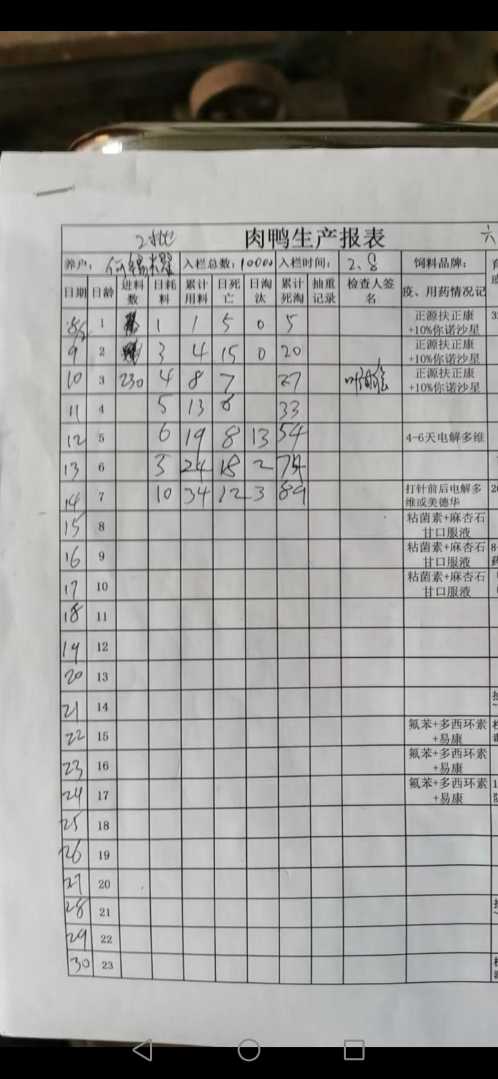 2批 肉鸭生产报表 六
养户: 入栏总数: 10000 入栏时间: 2.8 饲料品牌:
日期 日龄 进料数 日耗料 累计用料 日死亡 日淘汰 累计死淘 抽重记录 检查人签名 疫、用药情况记
8/2 1 1 1 5 0 5 正源扶正康+10%你诺沙星
9 2 3 4 15 0 20 正源扶正康+10%你诺沙星
10 3 230 4 8 7 27 正源扶正康+10%你诺沙星
11 4 5 13 6 33
12 5 6 19 8 13 54 4-6天电解多维
13 6 5 24 18 2 74
14 7 10 34 12 3 89 打针前后电解多维或美德华
15 8 粘菌素+麻杏石甘口服液
16 9 粘菌素+麻杏石甘口服液
17 10 粘菌素+麻杏石甘口服液
18 11
19 12
20 13
21 14
22 15 氟苯+多西环素+易康
23 16 氟苯+多西环素+易康
24 17 氟苯+多西环素+易康
25 18
26 19
27 20
28 21
29 22
30 23